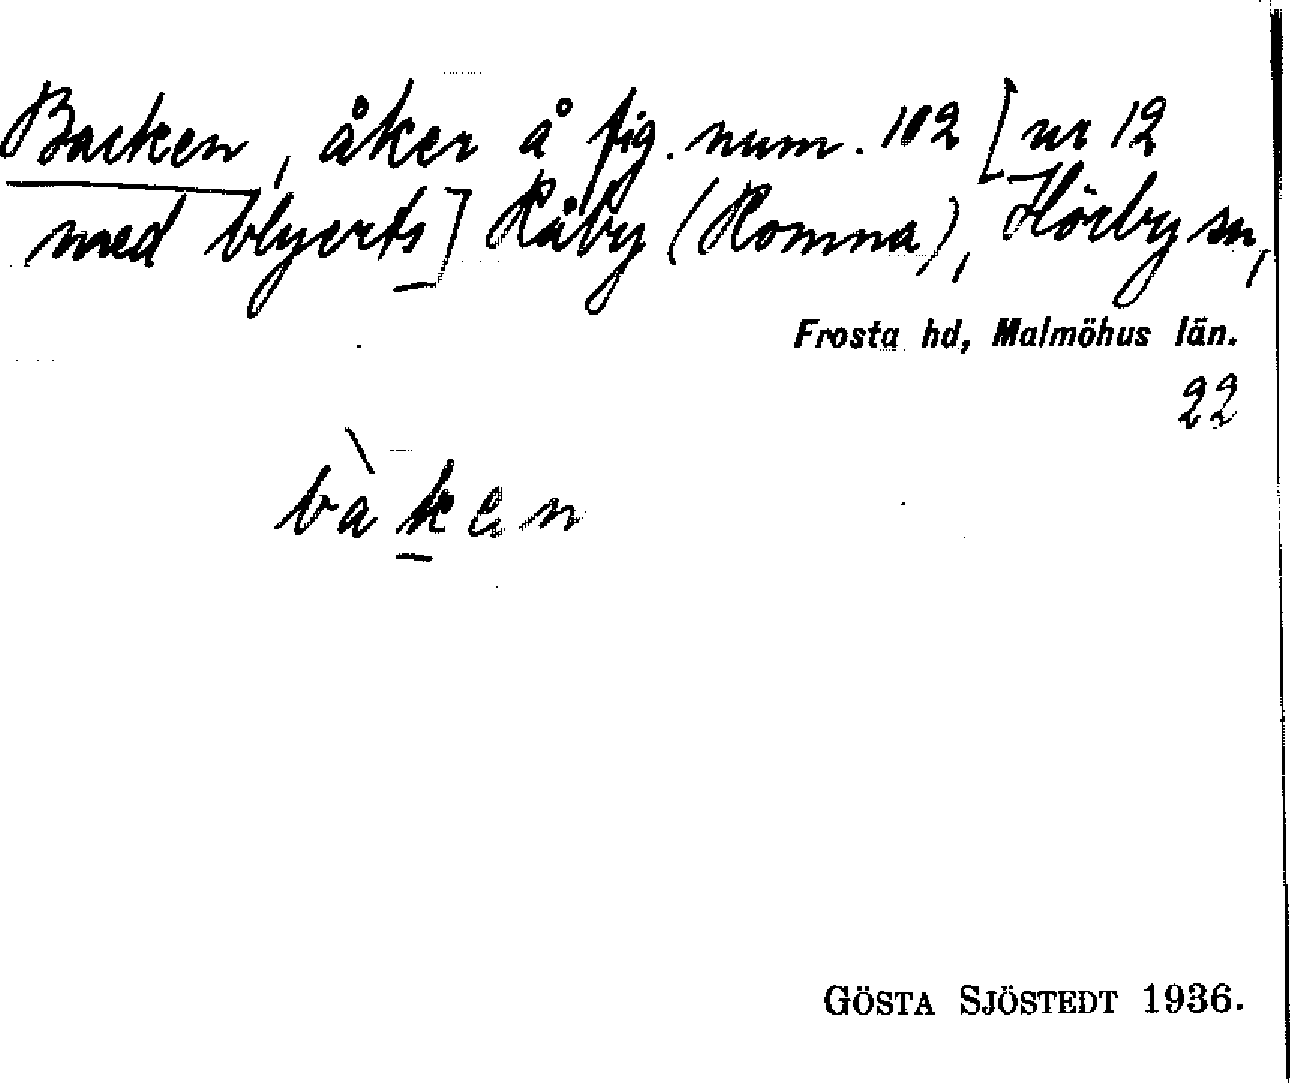 Backen, åker å fig. num. 102 [nr 12
med blyerts] Råby (Romna), Hörby sn,
Frosta hd, Malmöhus län.
22
bàken
GÖSTA SJÖSTEDT 1936.